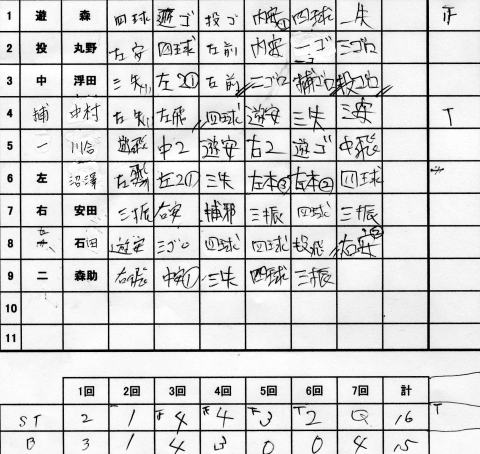 1 遊 森 四球 遊ゴ 投ゴ 内安① 四球 一失 正
2 投 丸野 左安 四球 左前 内安 一ゴ 三ゴロ
3 中 浮田 三失 左2① 左前 二ゴロ 捕ゴロ 投ゴロ
4 捕 中村 左失 左飛 四球 遊安 三失 三安 T
5 一 川合 遊飛 中2 遊安 右2 遊ゴ 中飛
6 左 沼澤 左飛 左2① 三失 左本③ 左本② 四球
7 右 安田 三振 右安 捕邪 三振 四球 三振
8 石田 遊安 三ゴロ 四球 四球 投飛 右安
9 二 森助 右飛 中安① 三失 四球 三振
10
11
1回 2回 3回 4回 5回 6回 7回 計
ST 2 1 4 4 3 2 0 16 T
B 3 1 4 3 0 0 4 15